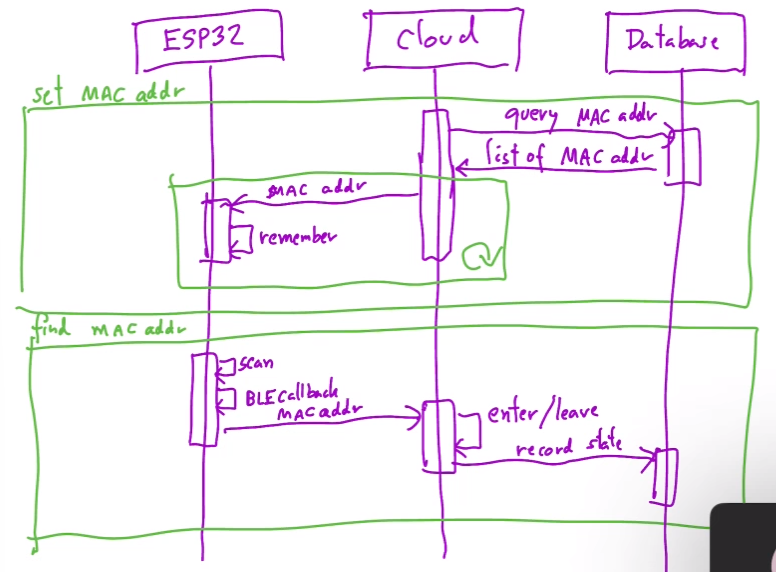 ESP32
Cloud
Database
set MAC addr
query MAC addr
list of MAC addr
MAC addr
remember
find MAC addr
scan
BLECallback
MAC addr
enter/leave
record state